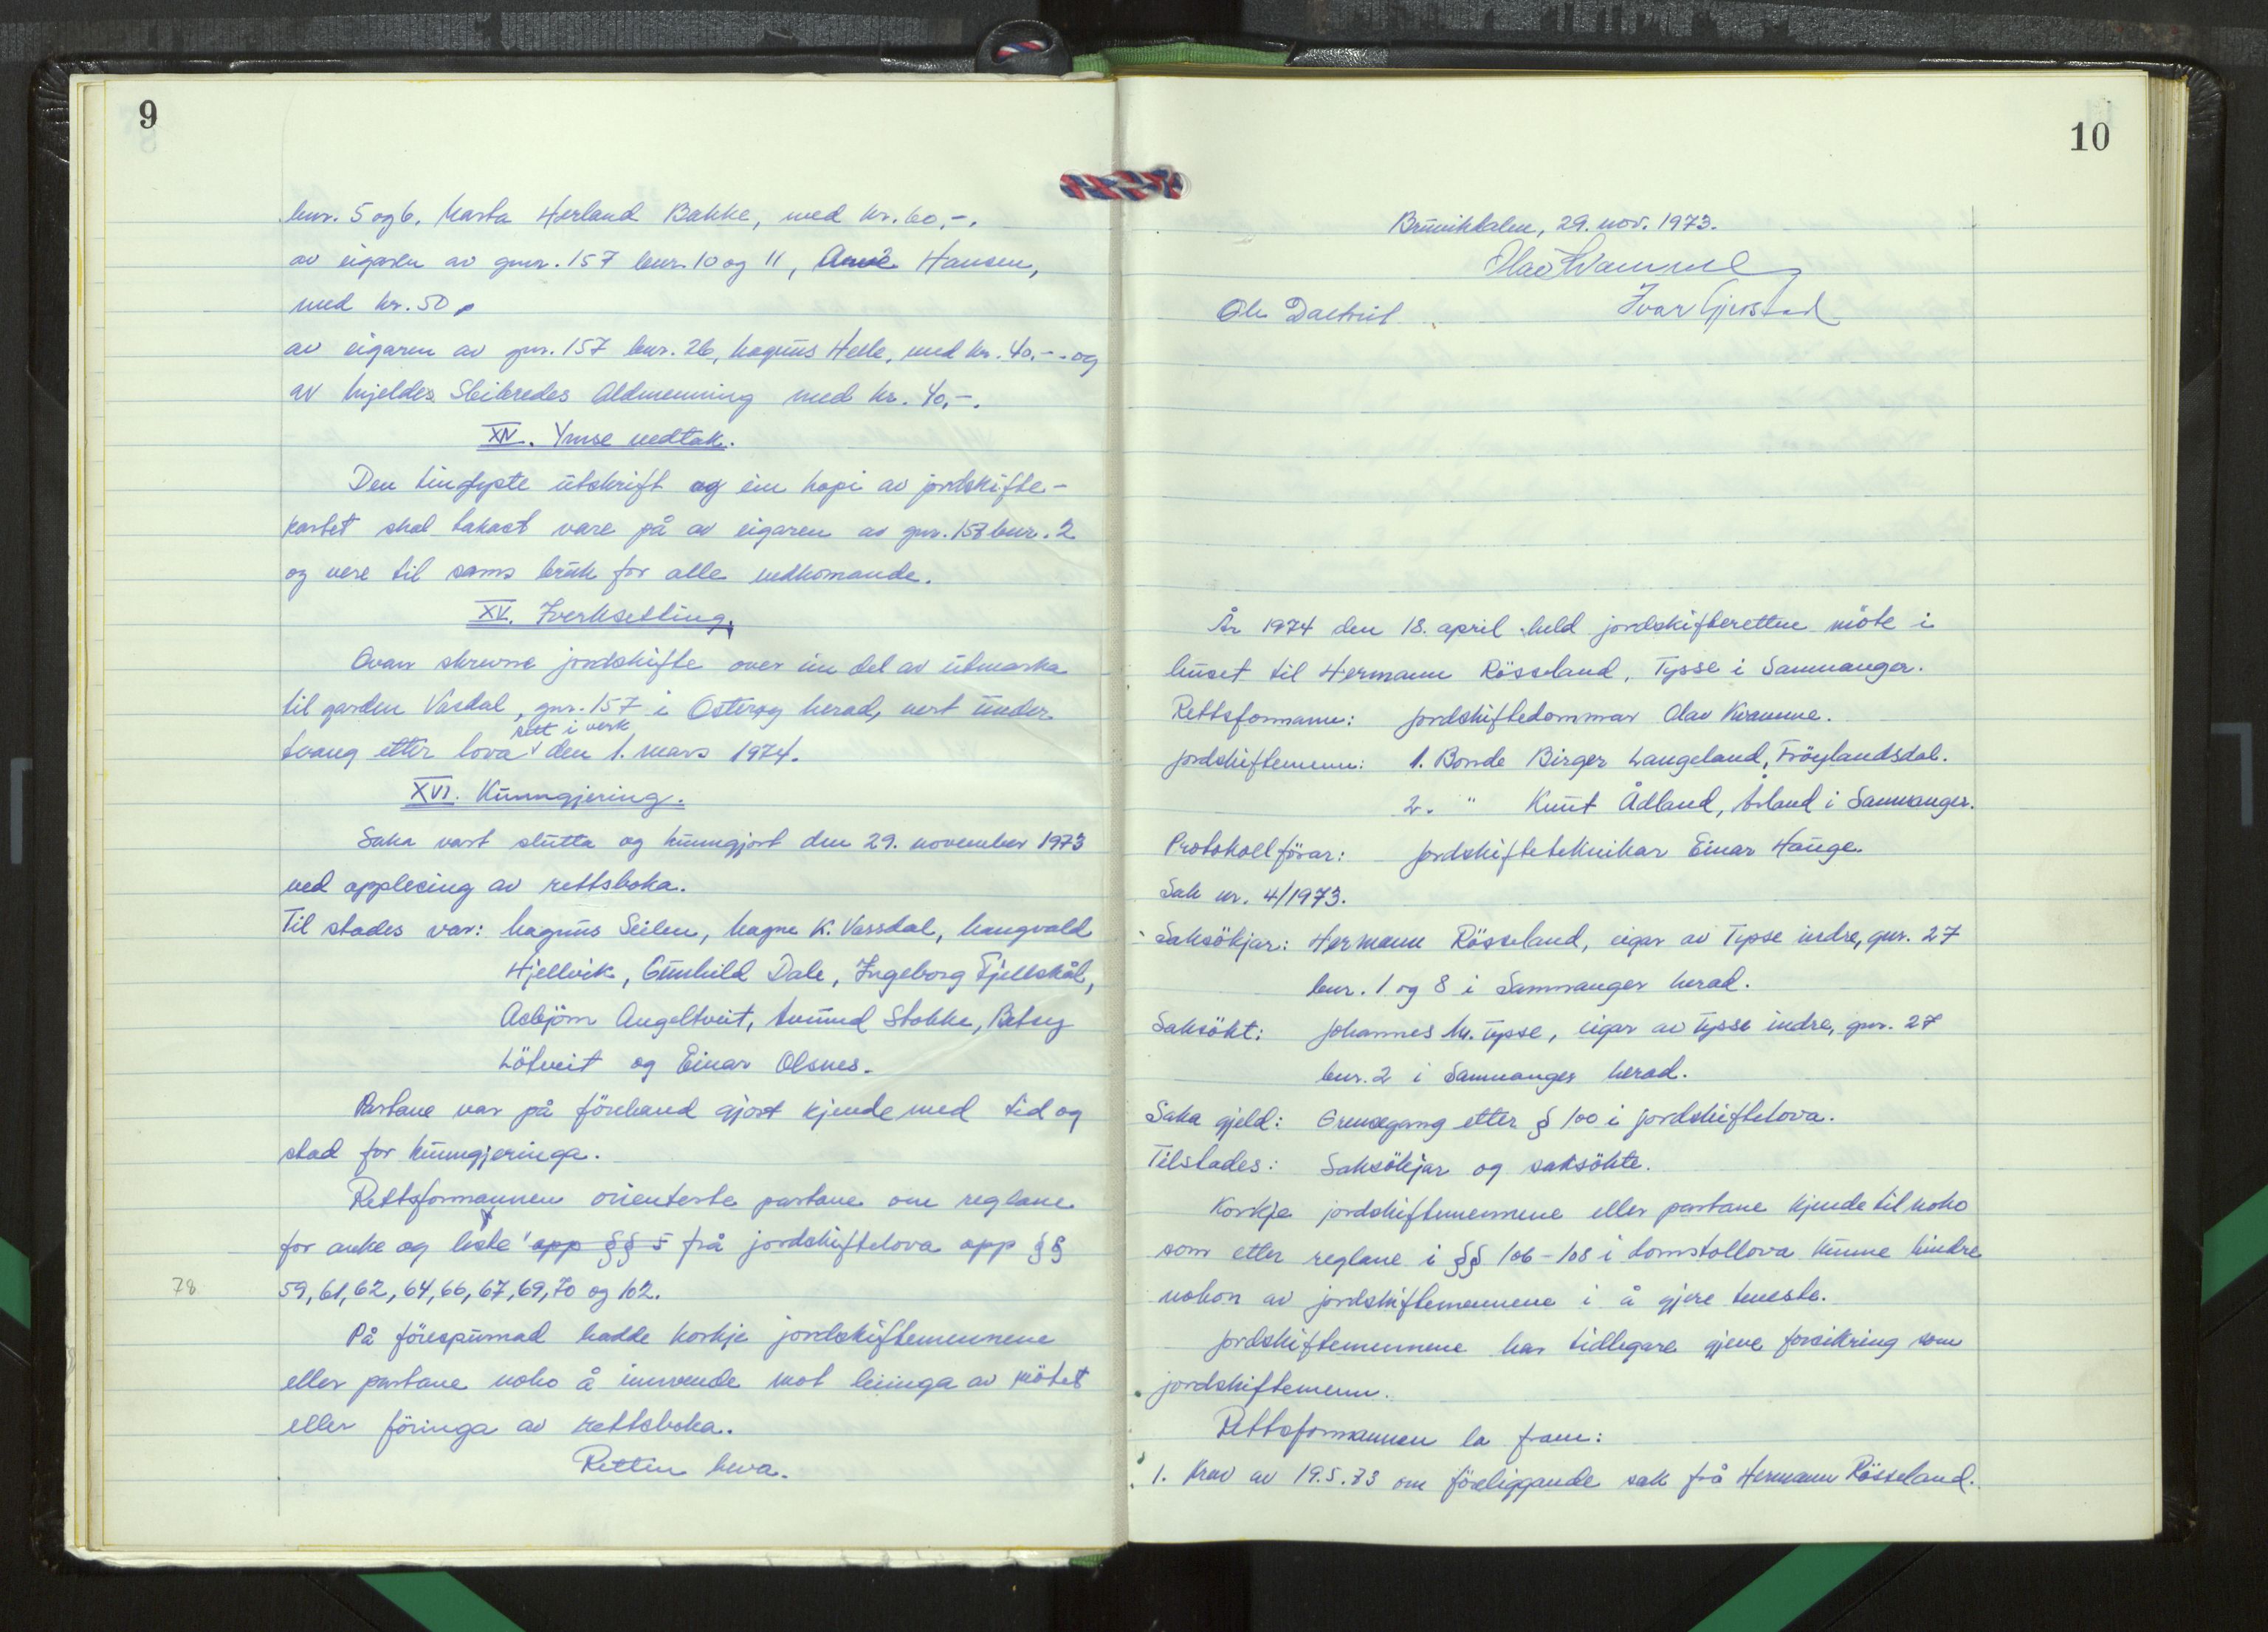 9
bnr. 5 og 6, Marta Herland Bakke, med kr. 60,-.
av eigaren av gnr. 157 bnr. 10 og 11, Arne Hansen,
med kr. 50
av eigaren av gnr. 157 bnr. 26, Magnus Helle, med kr. 40,-. og
av Mjeldes Sleibredes Aldmenning med kr. 40,-.
XIV. Ymse vedtak.
Den tinglyste utskrift og ein kopi av jordskifte-
kartet skal takast vare på av eigaren av gnr. 157 bnr. 2
og vere til sams bruk for alle vedkomande.
XV. Iverksetting.
Ovan skrevne jordskifte over ein del av utmarka
til garden Vasdal, gnr. 157 i Osterøy herad, vert under
sett i verk
tvang etter lova den 1. mars 1974.
XVI. Kunngjering.
Saka vart slutta og kunngjort den 29. november 1973
ved opplesing av rettsboka.
Til stades var: Magnus Seilen, Magne K. Vassdal, Mangvald
Hjellvik, Gunhild Dale, Ingeborg Fjellskål,
Asbjörn Angeltveit, Amund Stokke, Betsy
Lötveit og Einar Olsnes.
Partane var på förehand gjort kjende med tid og
stad for kunngjeringa.
Rettsformannen orienterte partane om reglane
for anke og leste opp §§ 5 frå jordskiftelova opp §§
78 59, 61, 62, 64, 66, 67, 69, 70 og 102.
På förespurnad hadde korkje jordskiftemennene
eller partane noko å innvende mot leiinga av mötet
eller föringa av rettsboka.
Retten heva.
10
Bruvikdalen, 29. nov. 1973.
Olav Kvamme
Ivar Gjerstad
Ole Daltveit
År 1974 den 18. april held jordskifteretten möte i
huset til Hermann Rösseland, Tysse i Samnanger.
Rettsformann: Jordskiftedommar Olav Kvamme.
Jordskiftemenn: 1. Bonde Birger Langeland, Fröylandsdal.
2. " Knut Ådland, Årland i Samnanger.
Protokollförar: Jordskifteteknikar Einar Hauge.
Sak nr. 4/1973.
Saksökjar: Hermann Rösseland, eigar av Tysse indre, gnr. 27
bnr. 1 og 8 i Samnanger herad.
Saksökt: Johannes M. Tysse, eigar av Tysse indre, gnr. 27
bnr. 2 i Samnanger herad.
Saka gjeld: Grensegang etter § 100 i jordskiftelova.
Tilstades: Saksökjar og saksökte.
Korkje jordskiftemennene eller partane kjende til noko
som etter reglane i §§ 106-108 i domstollova kunne hindre
nokon av jordskiftemennene i å gjere teneste.
Jordskiftemennene har tidlegare gjeve forsikring som
jordskiftemenn.
Rettsformannen la fram:
1. Krav av 19.5.73 om föreliggande sak frå Hermann Rösseland.